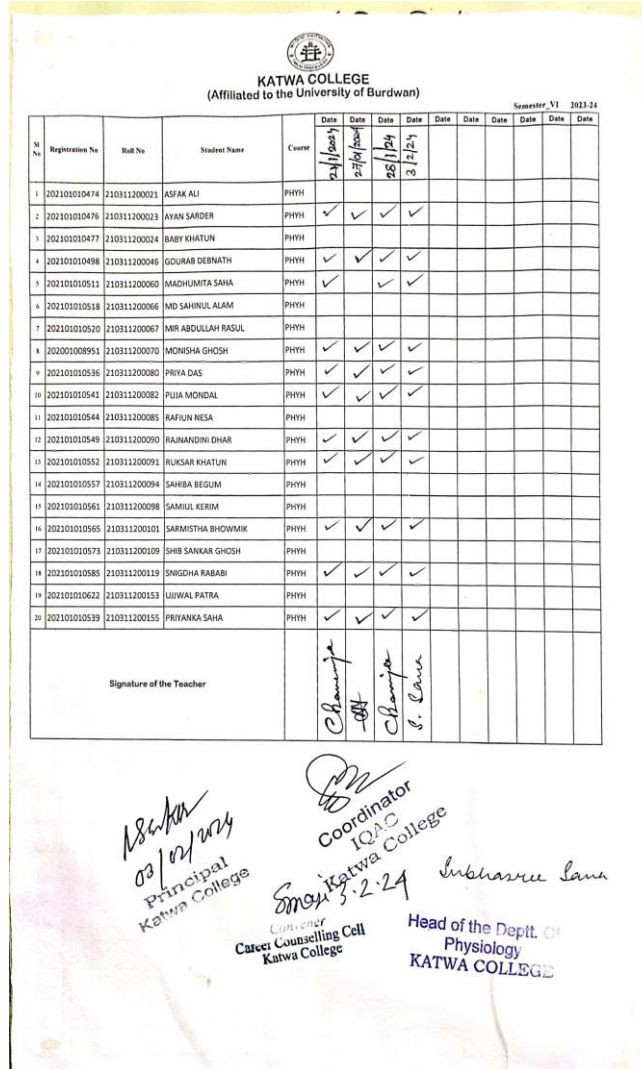 KATWA COLLEGE
(Affiliated to the University of Burdwan)
Semester_VI 2023-24
Sl No Registration No Roll No Student Name Course Date Date Date Date Date Date Date Date Date Date
27/01/2024 28/1/24 3/2/24
1 202101010474 210311200021 ASFAK ALI PHYH
2 202101010476 210311200023 AYAN SARDER PHYH ✓ ✓ ✓ ✓
3 202101010477 210311200024 BABY KHATUN PHYH
4 202101010498 210311200046 GOURAB DEBNATH PHYH ✓ ✓ ✓ ✓
5 202101010511 210311200060 MADHUMITA SAHA PHYH ✓ ✓ ✓
6 202101010518 210311200066 MD SAHINUL ALAM PHYH
7 202101010520 210311200067 MIR ABDULLAH RASUL PHYH
8 202001008951 210311200070 MONISHA GHOSH PHYH ✓ ✓ ✓ ✓
9 202101010536 210311200080 PRIYA DAS PHYH ✓ ✓ ✓ ✓
10 202101010541 210311200082 PUJA MONDAL PHYH ✓ ✓ ✓ ✓
11 202101010544 210311200085 RAFIUN NESA PHYH
12 202101010549 210311200090 RAJNANDINI DHAR PHYH ✓ ✓ ✓ ✓
13 202101010552 210311200091 RUKSAR KHATUN PHYH ✓ ✓ ✓ ✓
14 202101010557 210311200094 SAHIBA BEGUM PHYH
15 202101010561 210311200098 SAMIUL KERIM PHYH
16 202101010565 210311200101 SARMISTHA BHOWMIK PHYH ✓ ✓ ✓ ✓
17 202101010573 210311200109 SHIB SANKAR GHOSH PHYH
18 202101010585 210311200119 SNIGDHA RABABI PHYH ✓ ✓ ✓ ✓
19 202101010622 210311200153 UJJWAL PATRA PHYH
20 202101010539 210311200155 PRIYANKA SAHA PHYH ✓ ✓ ✓ ✓
Signature of the Teacher S. Sana
03/02/2024
Principal
Katwa College
Coordinator
IQAC
Katwa College
3.2.24
Convener
Career Counselling Cell
Katwa College
Subhasree Sana
Head of the Deptt. Of
Physiology
KATWA COLLEGE